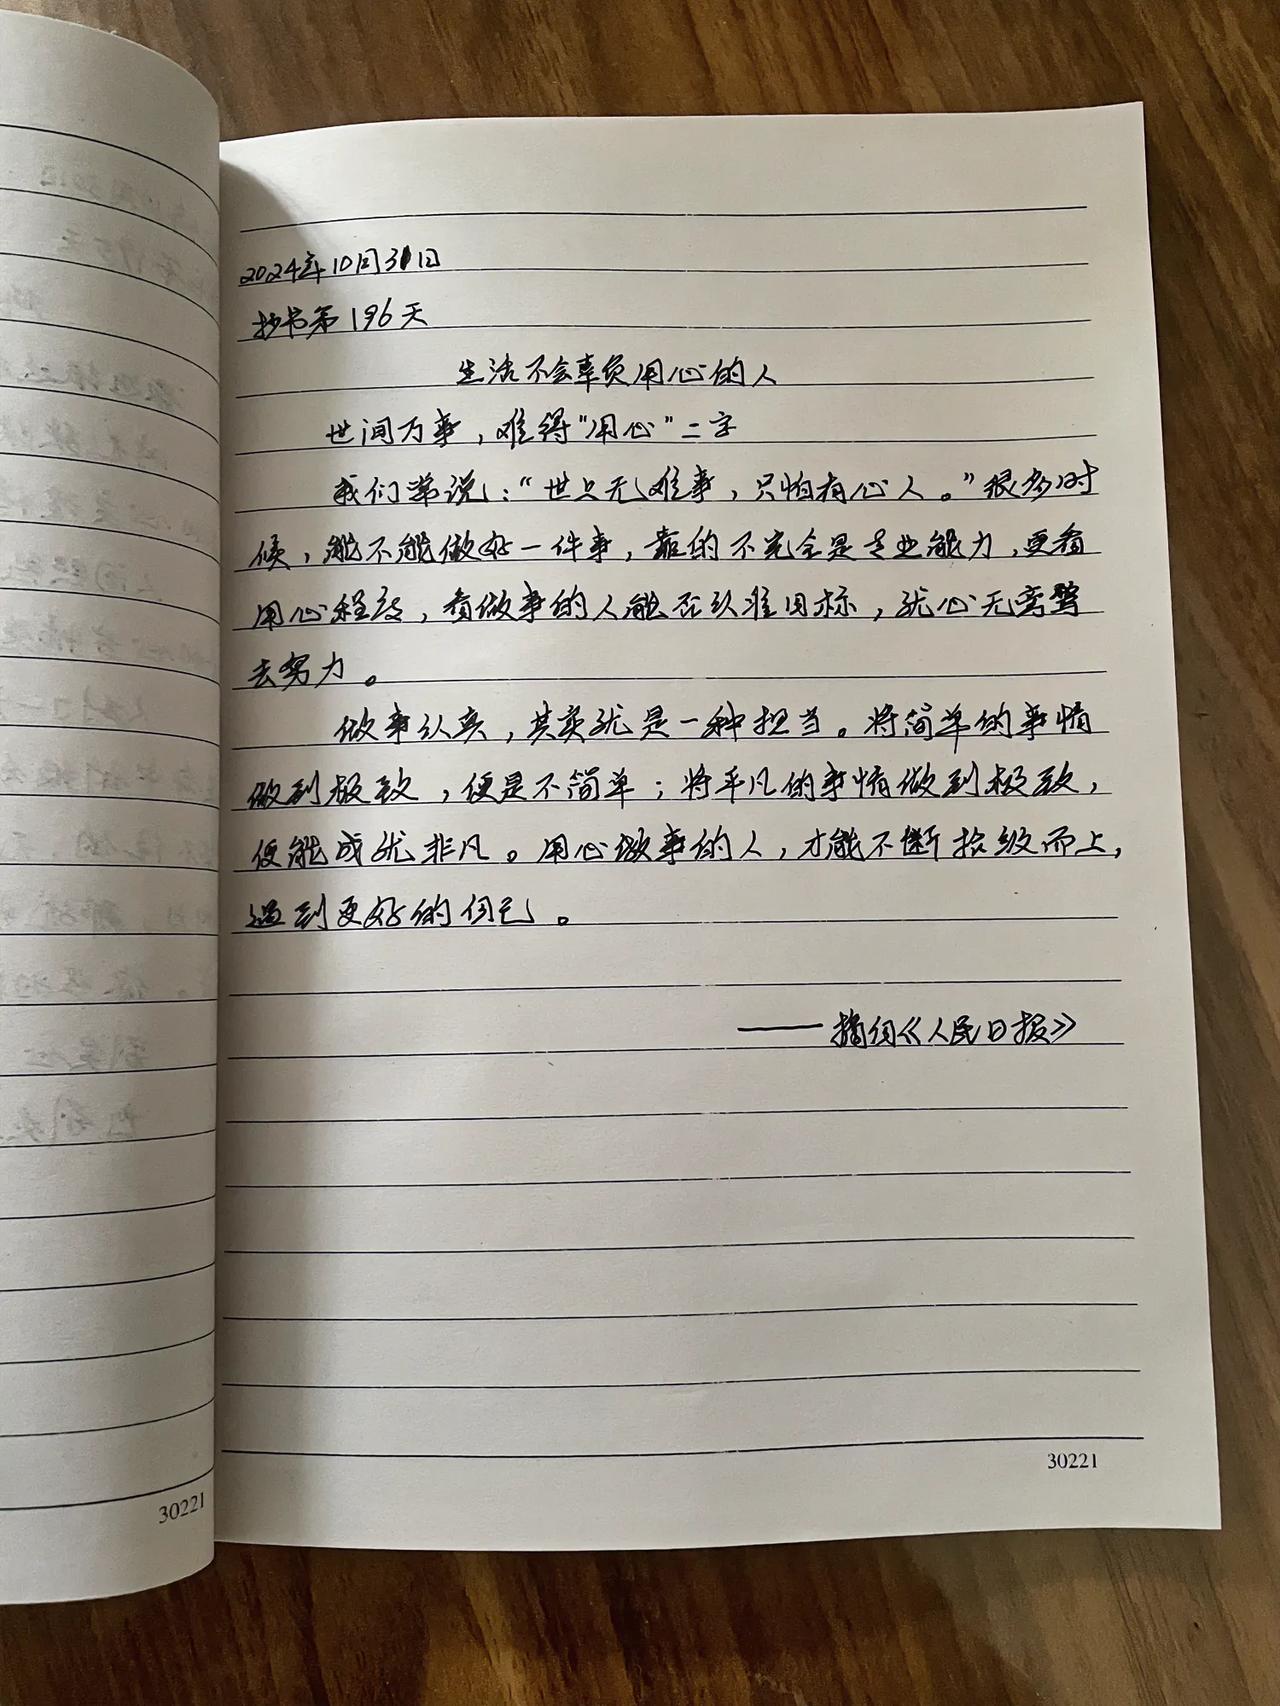 2024年10月31日
抄书第196天
生活不会辜负用心的人
世间万事，难得"用心"二字
我们常说："世上无难事，只怕有心人。"很多时
候，能不能做好一件事，靠的不完全是专业能力，更看
用心程度，看做事的人能否认准目标，就心无旁骛
去努力。
做事认真，其实就是一种担当。将简单的事情
做到极致，便是不简单；将平凡的事情做到极致，
便能成就非凡。用心做事的人，才能不断拾级而上，
遇到更好的自己。
——摘自《人民日报》
30221
30221